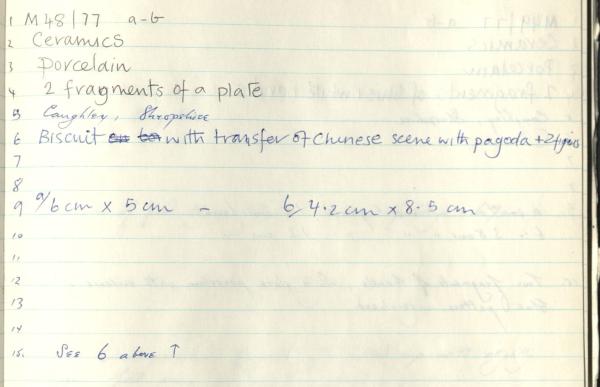 1 M48/77 a-b
2 Ceramics
3 porcelain
4 2 fragments of a plate
5 Caughley, Shropshire
6 Biscuit with transfer of Chinese scene with pagoda + 2 figures
7
8
9 a/ 6 cm x 5 cm - b/ 4.2 cm x 8.5 cm
10
11.
12
13
14
15. See 6 above ↑